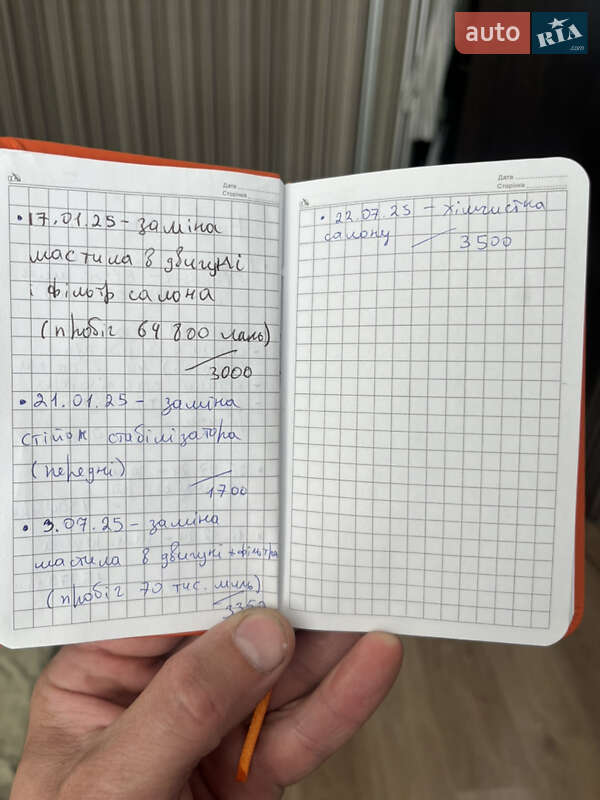 auto RIA .com
Дата
Сторінка
• 17.01.25 – заміна
мастила в двигуні
і фільтр салона
(пробіг 64 800 миль)
3000
• 21.01.25 – заміна
стійок стабілізатора
(передні)
1700
• 3.07.25 – заміна
мастила в двигуні + фільтра
(пробіг 70 тис. миль)
Дата
Сторінка
• 22.07.25 – хімчистка
салону 3500